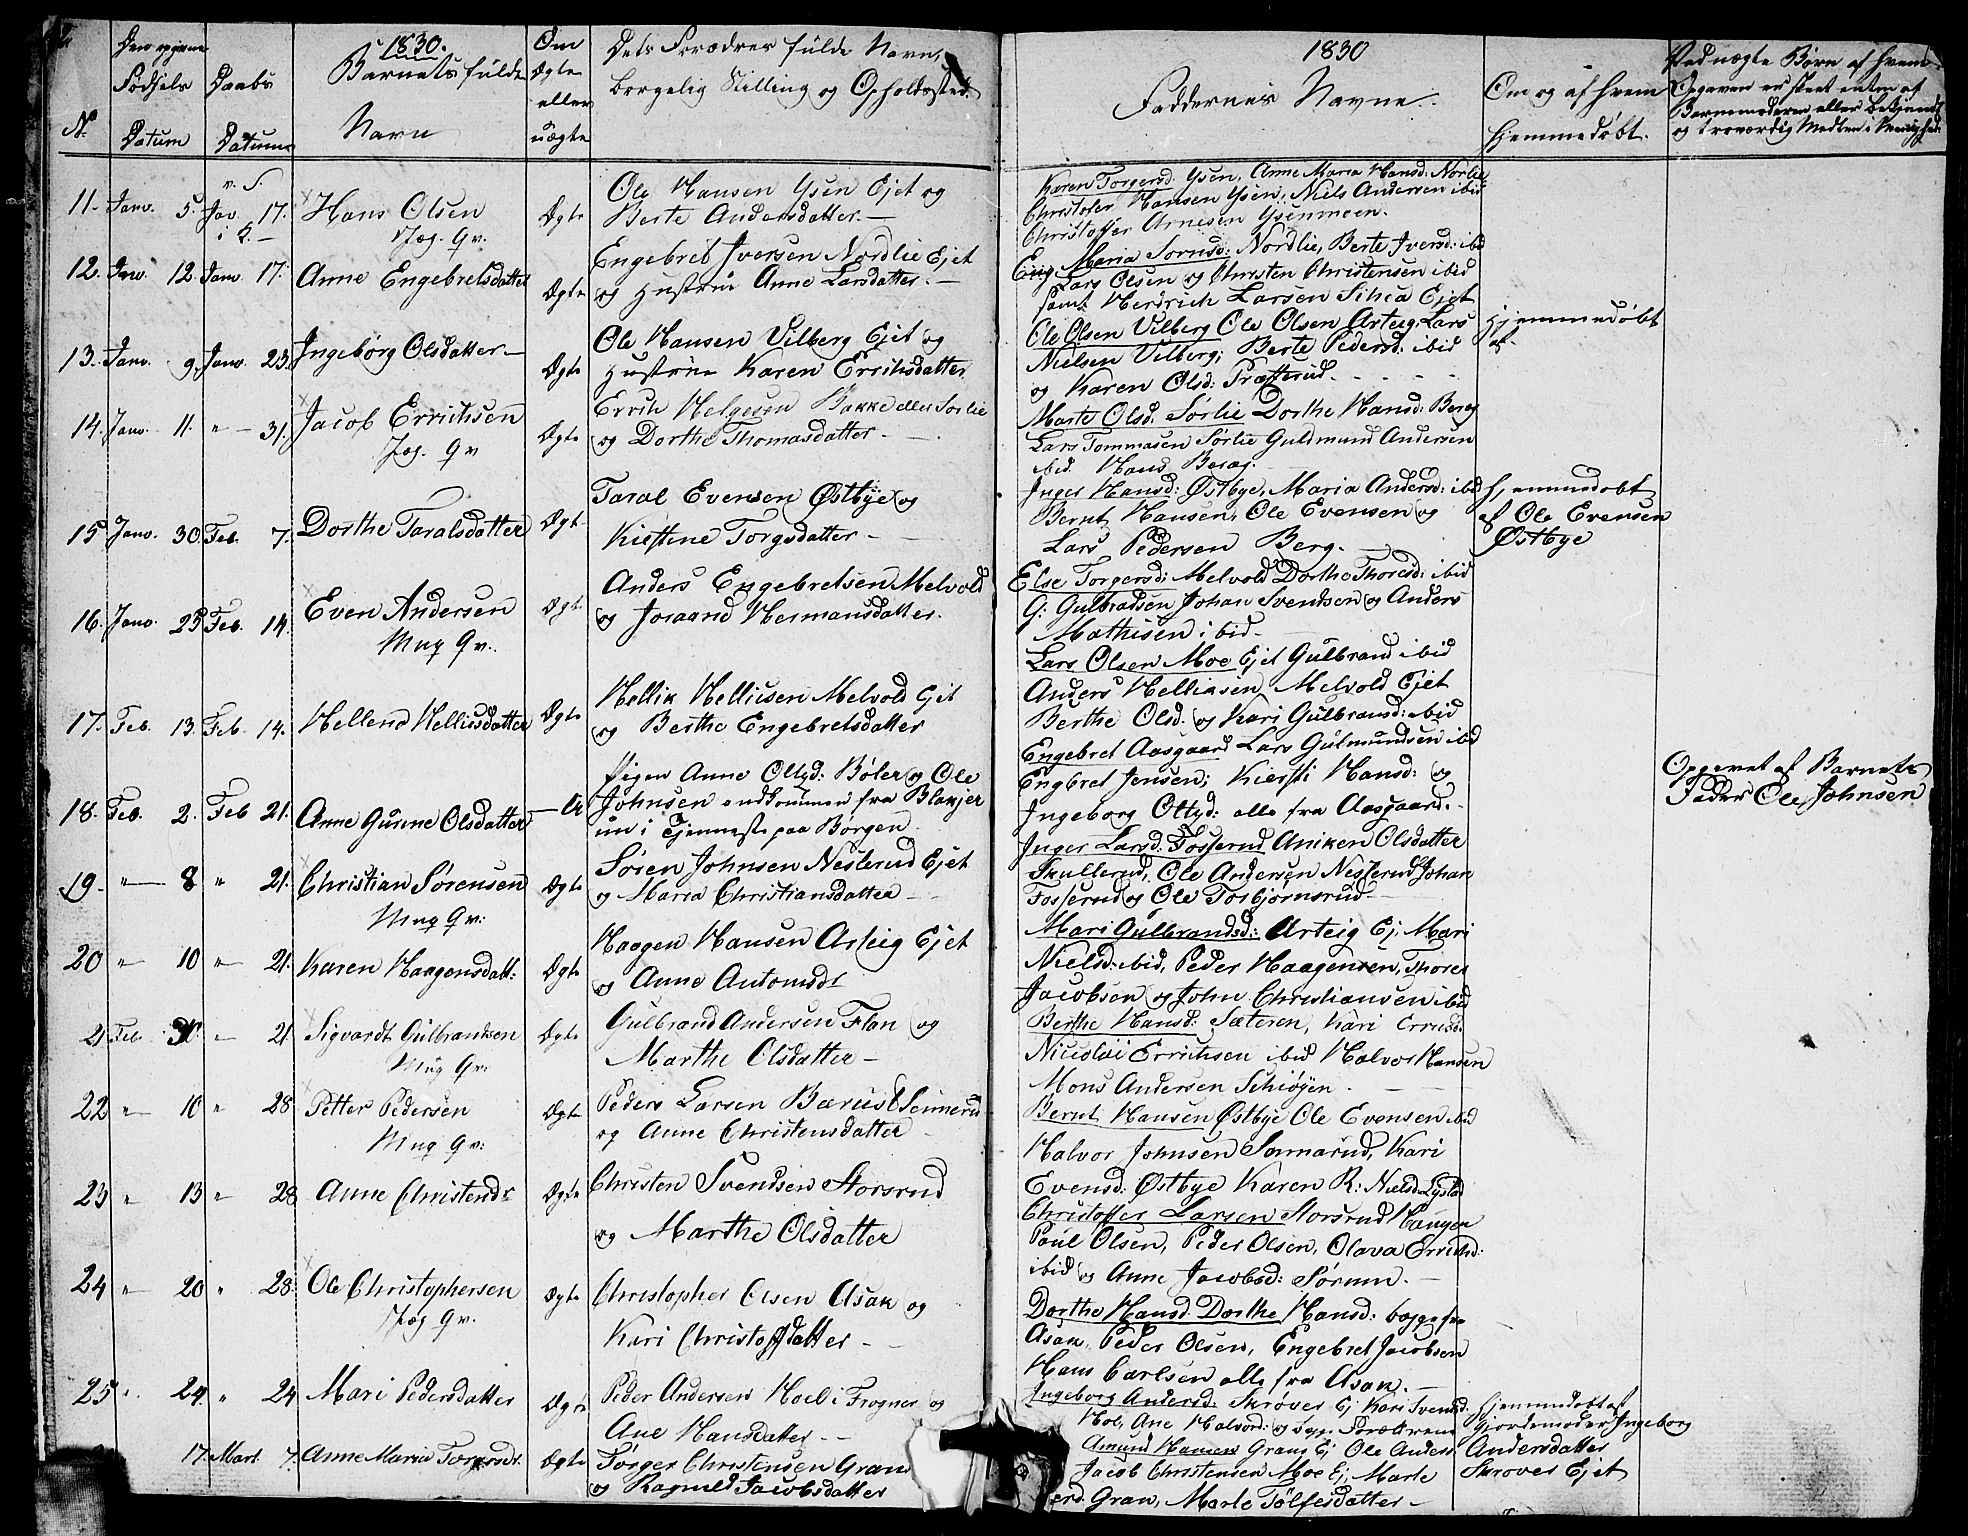 1830.
1830
Den
Fødsels
Datum
Daabs
Datum
Barnets fulde
Navn
Om
Ægte
eller
uægte
Dets Forældres fulde Navn,
borgelig Stilling og Opholdssted.
Faddernes Navne.
Om og af hvem
Hjemmedøbt.
Ved uægte Børn af hvem
Opgaven er skeet enten af
Barnemoderen eller
og troværdig
No
11. Janv. 5. Jav. 17. Hans Olsen Ægte Ole Hansen Ysen Ejet og
Berte Andersdatter.—
Jæg. Qv.
Karen Torgersd. Ysen, Anne Maria Hansd: Norlie
Christofer Hansen Ysen, Niels Andersen ibid
Christoffer Arnesen Ysenmoen.
12. Janv. 12. Janv. 17. Anne Engebretsdatter Ægte Engebret Iversen Nordlie Ejet
og Hustrue Anne Larsdatter.—
Maria Sornsd: Nordlie, Berte Iversd: ibid
Lars Olsen og Christen Christensen ibid
samt Hendrich Larsen Ejet
13. Janv. 9. Janv. 23. Ingebørg Olsdatter— Ægte Ole Hansen Vilberg Ejet og
Hustrue Karen Errichsdatter
Ole Olsen Vilberg Ole Olsen Arteig, Lars
Nielsen Vilberg; Berte Pedersd: ibid
og Karen Olsd: Præsterud.
Hjemmedøbt
af.
14. Janv. 11. " 31. Jacob Errichsen Ægte Errich Helgesen Bakke eller Sorlie
og Dorthe Thomasdatter.
Jæg. Qv
Marte Olsd. Sørlie Dorthe Hansd: Berag
Lars Tommasen Sørlie Guldmund Andersen
ibid. Hans Berag.
15 Janv. 30. Feb. 7. Dorthe Taralsdatter Ægte Taral Evensen Østbye og
Kirstine Torgsdatter.
Inger Hansd: Østbye, Maria Andersd: ibid
Bernt Hansen, Ole Evensen og
Lars Pedersen Berg.
Hjemmedøbt
af Ole Evensen
Østbye
16. Janv. 25 Feb. 14. Even Andersen Ægte Anders Engebretsen Melvold
og Joraand Hermansdatter.
Mug Qv.
Else Torgersd: Melvold Dorthe Thoresd: ibid
G: Gulbradsen Johan Svendsen og Anders
Mathisen ibid.
17. Feb. 13. Feb. 14. Hellene Hellicsdatter Ægte Hellik Hellicsen Melvold Ejet
og Berthe Engebretsdatter
Lars Olsen Moe Ejet Gulbrand ibid
Anders Helliksen Melvold Ejet
Berthe Olsd. og Kari Gulbransd: ibid
18. Feb. 2. Feb 21. Anne Gunne Olsdatter — U Pigen Anne Ollsd: Bøler og Ole
Johnsen endkommen fra Blakjer
nu i Tjenneste paa Børgen
Engebret Aasgaard Lars Gulmundsen ibid
Engbret Jensen; Kiersti Hansd: og
Ingeborg Ottsd: alle fra Aasgaard.
Opgevet af Barnets
Fader Ole Johnsen
19. " 8 " 21. Christian Sørensen Ægte Søren Johnsen Nesterud Ejet
og Maria Christiansdatter
Mug Qv:
Inger Larsd: Fosserud Aniken Olsdatter
Skullerud, Ole Andersen Nesterud Johan
Fosserud og Ole Torbjørnsrud
20 " 10 " 21. Karen Haagensdatt: Ægte Haagen Hansen Arteig Ejet
og Anne Antonsdr
Mari Gulbrandsd: Arteig Ej. Mari
Nielsd: ibid, Peder Haagensen, Thores
Jacobsen og John Christiansen ibid
21 Feb. " 21 Sigvardt Gulbrantsen Ægte Gulbrand Andersen Flan og
Marthe Olsdatter—
Mug Qv:
Berthe Hansd: Sæteren, Kari
Nicolai Errichsen ibid Halvor Hansen
Mons Andersen Schiøyen.
22 " 10 " 28 Petter Pedersen Ægte Peders Larsen
og Anne Christensdatter
Mug Qv:
Bernt Hansen Østbye Ole Evensen ibid
Halvor Johnsen Sonnerud, Kari
Evensd: Østbye Karen R: Nielsd
23 " 13 " 28 Anne Christendr Ægte Christen Svendsen Storsrud
og Marthe Olsdatter
Christoffer Larsen Storsrud Haugen
Poul Olsen, Peder Olsen, Olava Errichsd:
ibid og Anne Jacobsd: Sørum.
24 " 20 " 28. Ole Christophersen Ægte Christopher Olsen Asak og
Kari Christoffsdatter—
Jæg Qv.
Dorthe Hansd. Dorthe Hansd: begge fra
Asak Peder Olsen, Engebret Jacobsen
Hans Carlsen alle fra Asak.—
25 " 24. " 24 Mari Pedersdatter Ægte Peder Andersen Hoel i Frogner og
Ane Hansdatter
Ingeborg Andersd: Skrøver Ej. Kari Svensd.
Hoe, Ane Halvord: og Forældrene
Hjemmedøbt af
Gjordemoder Ingeborg
Andersdatter
Skrøver Ejet
17. Mart. 7. Anne Maria Torgersdr. Ægte Tørger Christensen Gran
og Ragnild Jacobsdatter
Amund Hansen Grans Ej Ole Anders
Jacob Christensen Moe Ej, Marte
Gran, Marte Tolfesdatter—